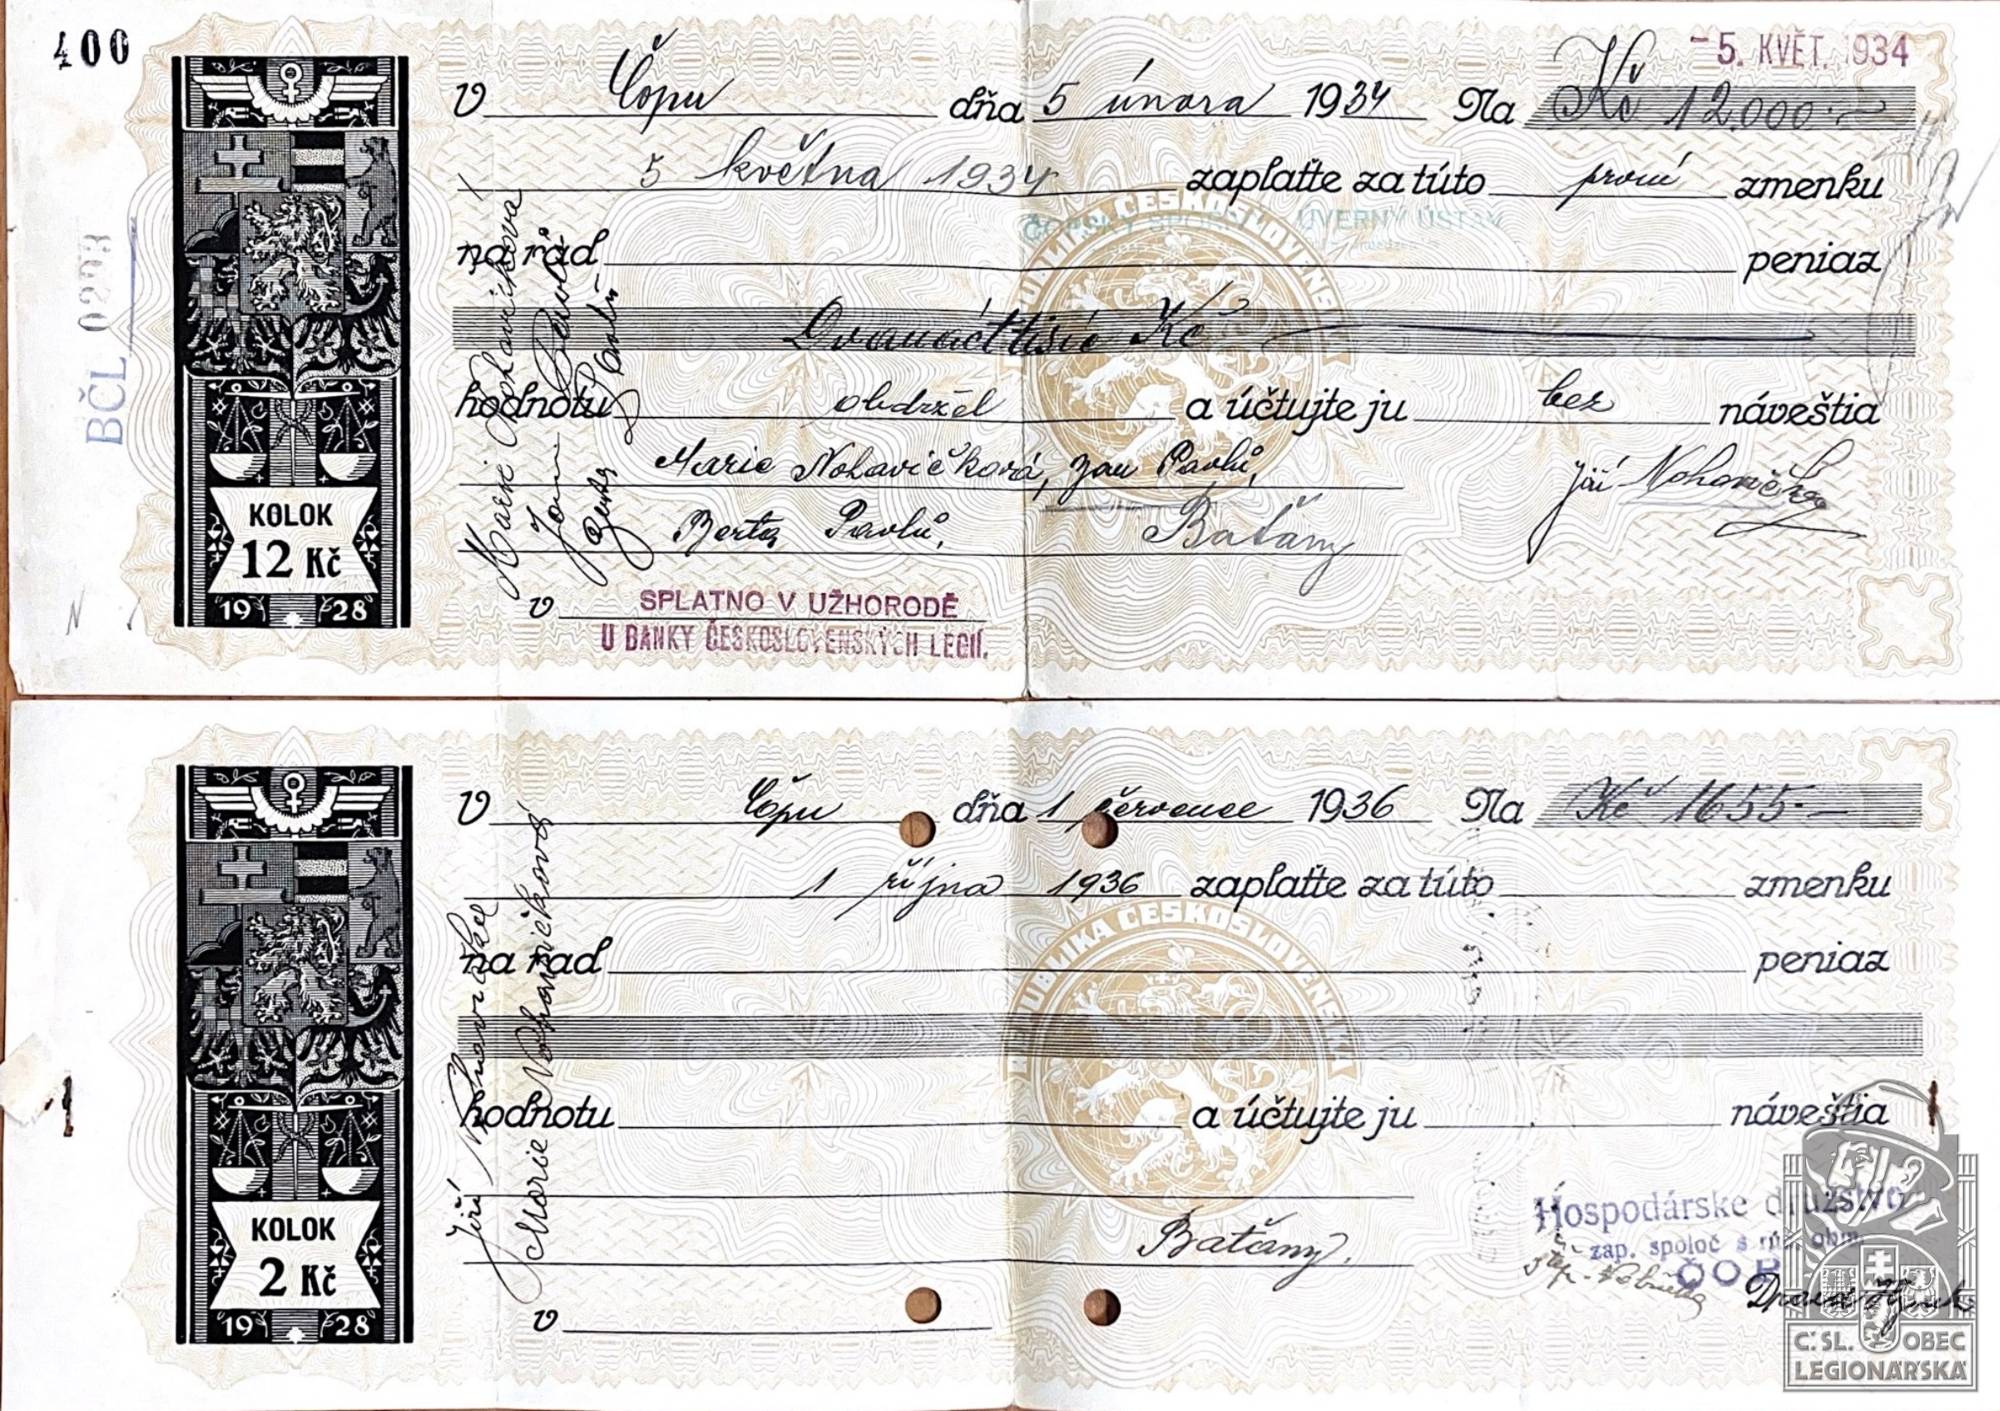 400
- 5. KVĚT. 1934
V Čopu dňa 5 února 1934 Na Kč 12.000.-
5 května 1934 zaplaťte za túto první zmenku
ÚVERNÝ ÚSTAV
na rad peniaz
Dvanácttisíc Kč
hodnotu obdržel a účtujte ju bez náveštia
Marie Nohavičková, Jan Pavlů,
Jiří Nohavička
Berta Pavlů, Baťany
v SPLATNO V UŽHORODĚ
U BANKY ČESKOSLOVENSKÝCH LEGIÍ.
Marie Nohavičková
Jan Pavlů
Berta Pavlů
BČL 0293
KOLOK
12 Kč
1928
REPUBLIKA ČESKOSLOVENSKÁ
V Čopu dňa 1 července 1936 Na Kč 1655.-
1 října 1936 zaplaťte za túto zmenku
na rad peniaz
hodnotu a účtujte ju náveštia
Baťany.
v
Jiří Nohavička
Marie Nohavičková
Hospodárske družstvo
zap. spoloč s ruč. obm.
KOLOK
2 Kč
1928
REPUBLIKA ČESKOSLOVENSKÁ
Č.SL. OBEC
LEGIONÁŘSKÁ